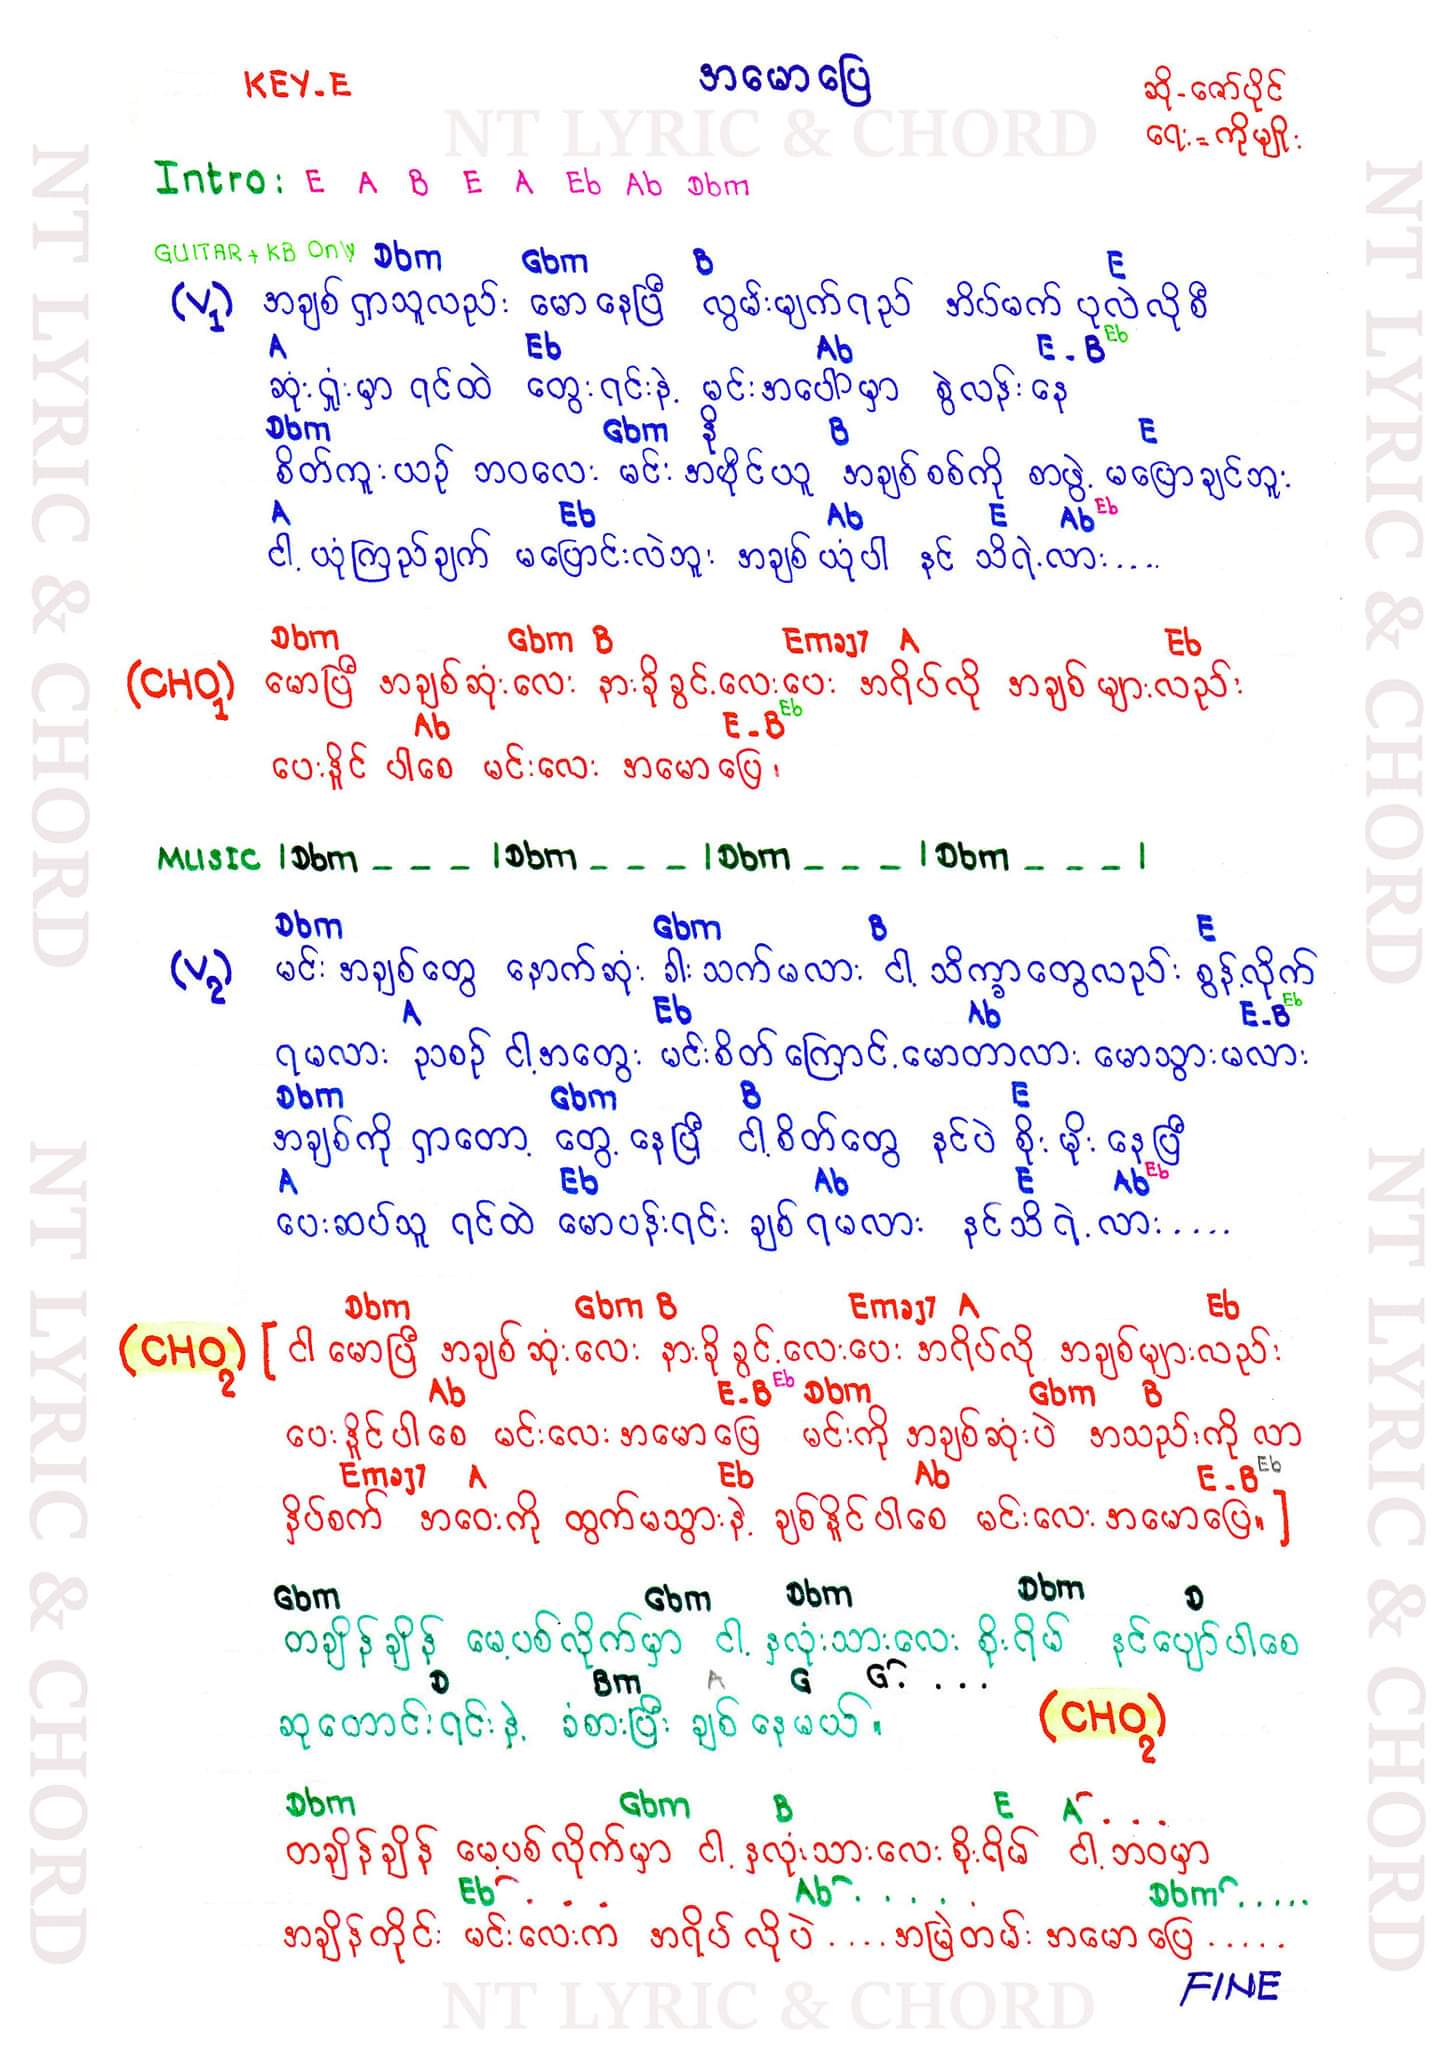 KEY-E
အမောပြေ
ဆို-ဇော်ပိုင်
ရေး=ကိုမျိုး
NT LYRIC & CHORD
Intro: E A B E A Eb Ab Dbm
GUITAR + KB Only Dbm Gbm B E
(V1) အချစ် ရှာသူလည်း မောနေပြီ လွမ်းမျက်ရည် အိပ်မက် ပုလဲလိုစီ
A Eb Ab E-B Eb
ဆုံးရှုံးမှာ ရင်ထဲ တွေးရင်းနဲ့ မင်းအပေါ်မှာ စွဲလန်းနေ
Dbm Gbm နို B E
စိတ်ကူးယဉ် ဘဝလေး မင်း အပိုင်ယူ အချစ်စစ်ကို စာဖွဲ့ မပြောချင်ဘူး
A Eb Ab E Ab Eb
ငါ့ ယုံကြည်ချက် မပြောင်းလဲဘူး အချစ်ယုံပါ နင် သိရဲ့လား....
Dbm Gbm B Emaj7 A Eb
(CHO1) မောပြီ အချစ်ဆုံးလေး နားခိုခွင့်လေးပေး အရိပ်လို အချစ် များလည်း
Ab E-B Eb
ပေးနိုင်ပါစေ မင်းလေး အမောပြေ၊
MUSIC |Dbm _ _ _ |Dbm _ _ _ |Dbm _ _ _ |Dbm _ _ _ |
Dbm Gbm B E
(V2) မင်း အချစ်တွေ နောက်ဆုံး ခါးသက်မလား ငါ့ သိက္ခာတွေလည်း စွန့်လိုက်
A Eb Ab E-B Eb
ရမလား ညစဉ် ငါ့အတွေး မင်းစိတ်ကြောင့် မောတာလား မောသွားမလား
Dbm Gbm B E
အချစ်ကို ရှာတော့ တွေ့နေပြီ ငါ့စိတ်တွေ နင်ပဲ စိုးမိုးနေပြီ
A Eb Ab E Ab Eb
ပေးဆပ်သူ ရင်ထဲ မောပန်းရင်း ချစ်ရမလား နင်သိရဲ့လား....
Dbm Gbm B Emaj7 A Eb
(CHO2) [ ငါ မောပြီ အချစ်ဆုံးလေး နားခိုခွင့်လေးပေး အရိပ်လို အချစ်များလည်း
Ab E-B Eb Dbm Gbm B
ပေးနိုင်ပါစေ မင်းလေးအမောပြေ မင်းကို အချစ်ဆုံးပဲ အသည်းကို လာ
Emaj7 A Eb Ab E-B Eb
နှိပ်စက် အဝေးကို ထွက်မသွားနဲ့ ချစ်နိုင်ပါစေ မင်းလေးအမောပြေ။ ]
Gbm Gbm Dbm Dbm D
တချိန်ချိန် မေ့ပစ်လိုက်မှာ ငါ့ နှလုံးသားလေး စိုးရိမ် နင်ပျော်ပါစေ
D Bm A G G....
ဆုတောင်းရင်းနဲ့ ခံစားပြီး ချစ်နေမယ်။ (CHO2)
Dbm Gbm B E A....
တချိန်ချိန် မေ့ပစ်လိုက်မှာ ငါ့ နှလုံးသားလေးစိုးရိမ် ငါ့ဘဝမှာ
Eb.... Ab..... Dbm.....
အချိန်တိုင်း မင်းလေးက အရိပ်လိုပဲ....အမြဲတမ်း အမောပြေ.....
FINE
NT LYRIC & CHORD
NT LYRIC & CHORD
NT LYRIC & CHORD
NT LYRIC & CHORD
NT LYRIC & CHORD
NT LYRIC & CHORD